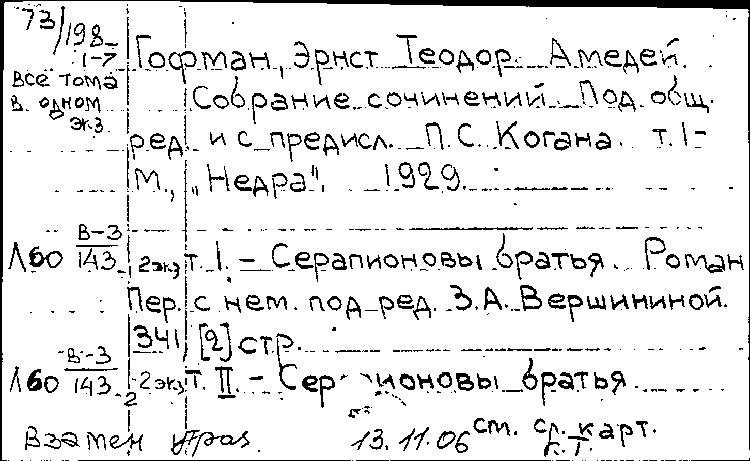 73/198
1-7
все тома
в одном
экз.
Гофман, Эрнст Теодор Амедей.
Собрание сочинений. Под общ.
ред. и с предисл. П.С. Когана. т. I-
М., "Недра". 1929.
Л60 В-3/143 2экз т. I. - Серапионовы братья. Роман
Пер. с нем. под ред. З.А. Вершининой.
341, [2] стр.
Л60 В-3/143 2 2экз т. II. - Серапионовы братья
Взамен 13.11.06 см. сл. карт.